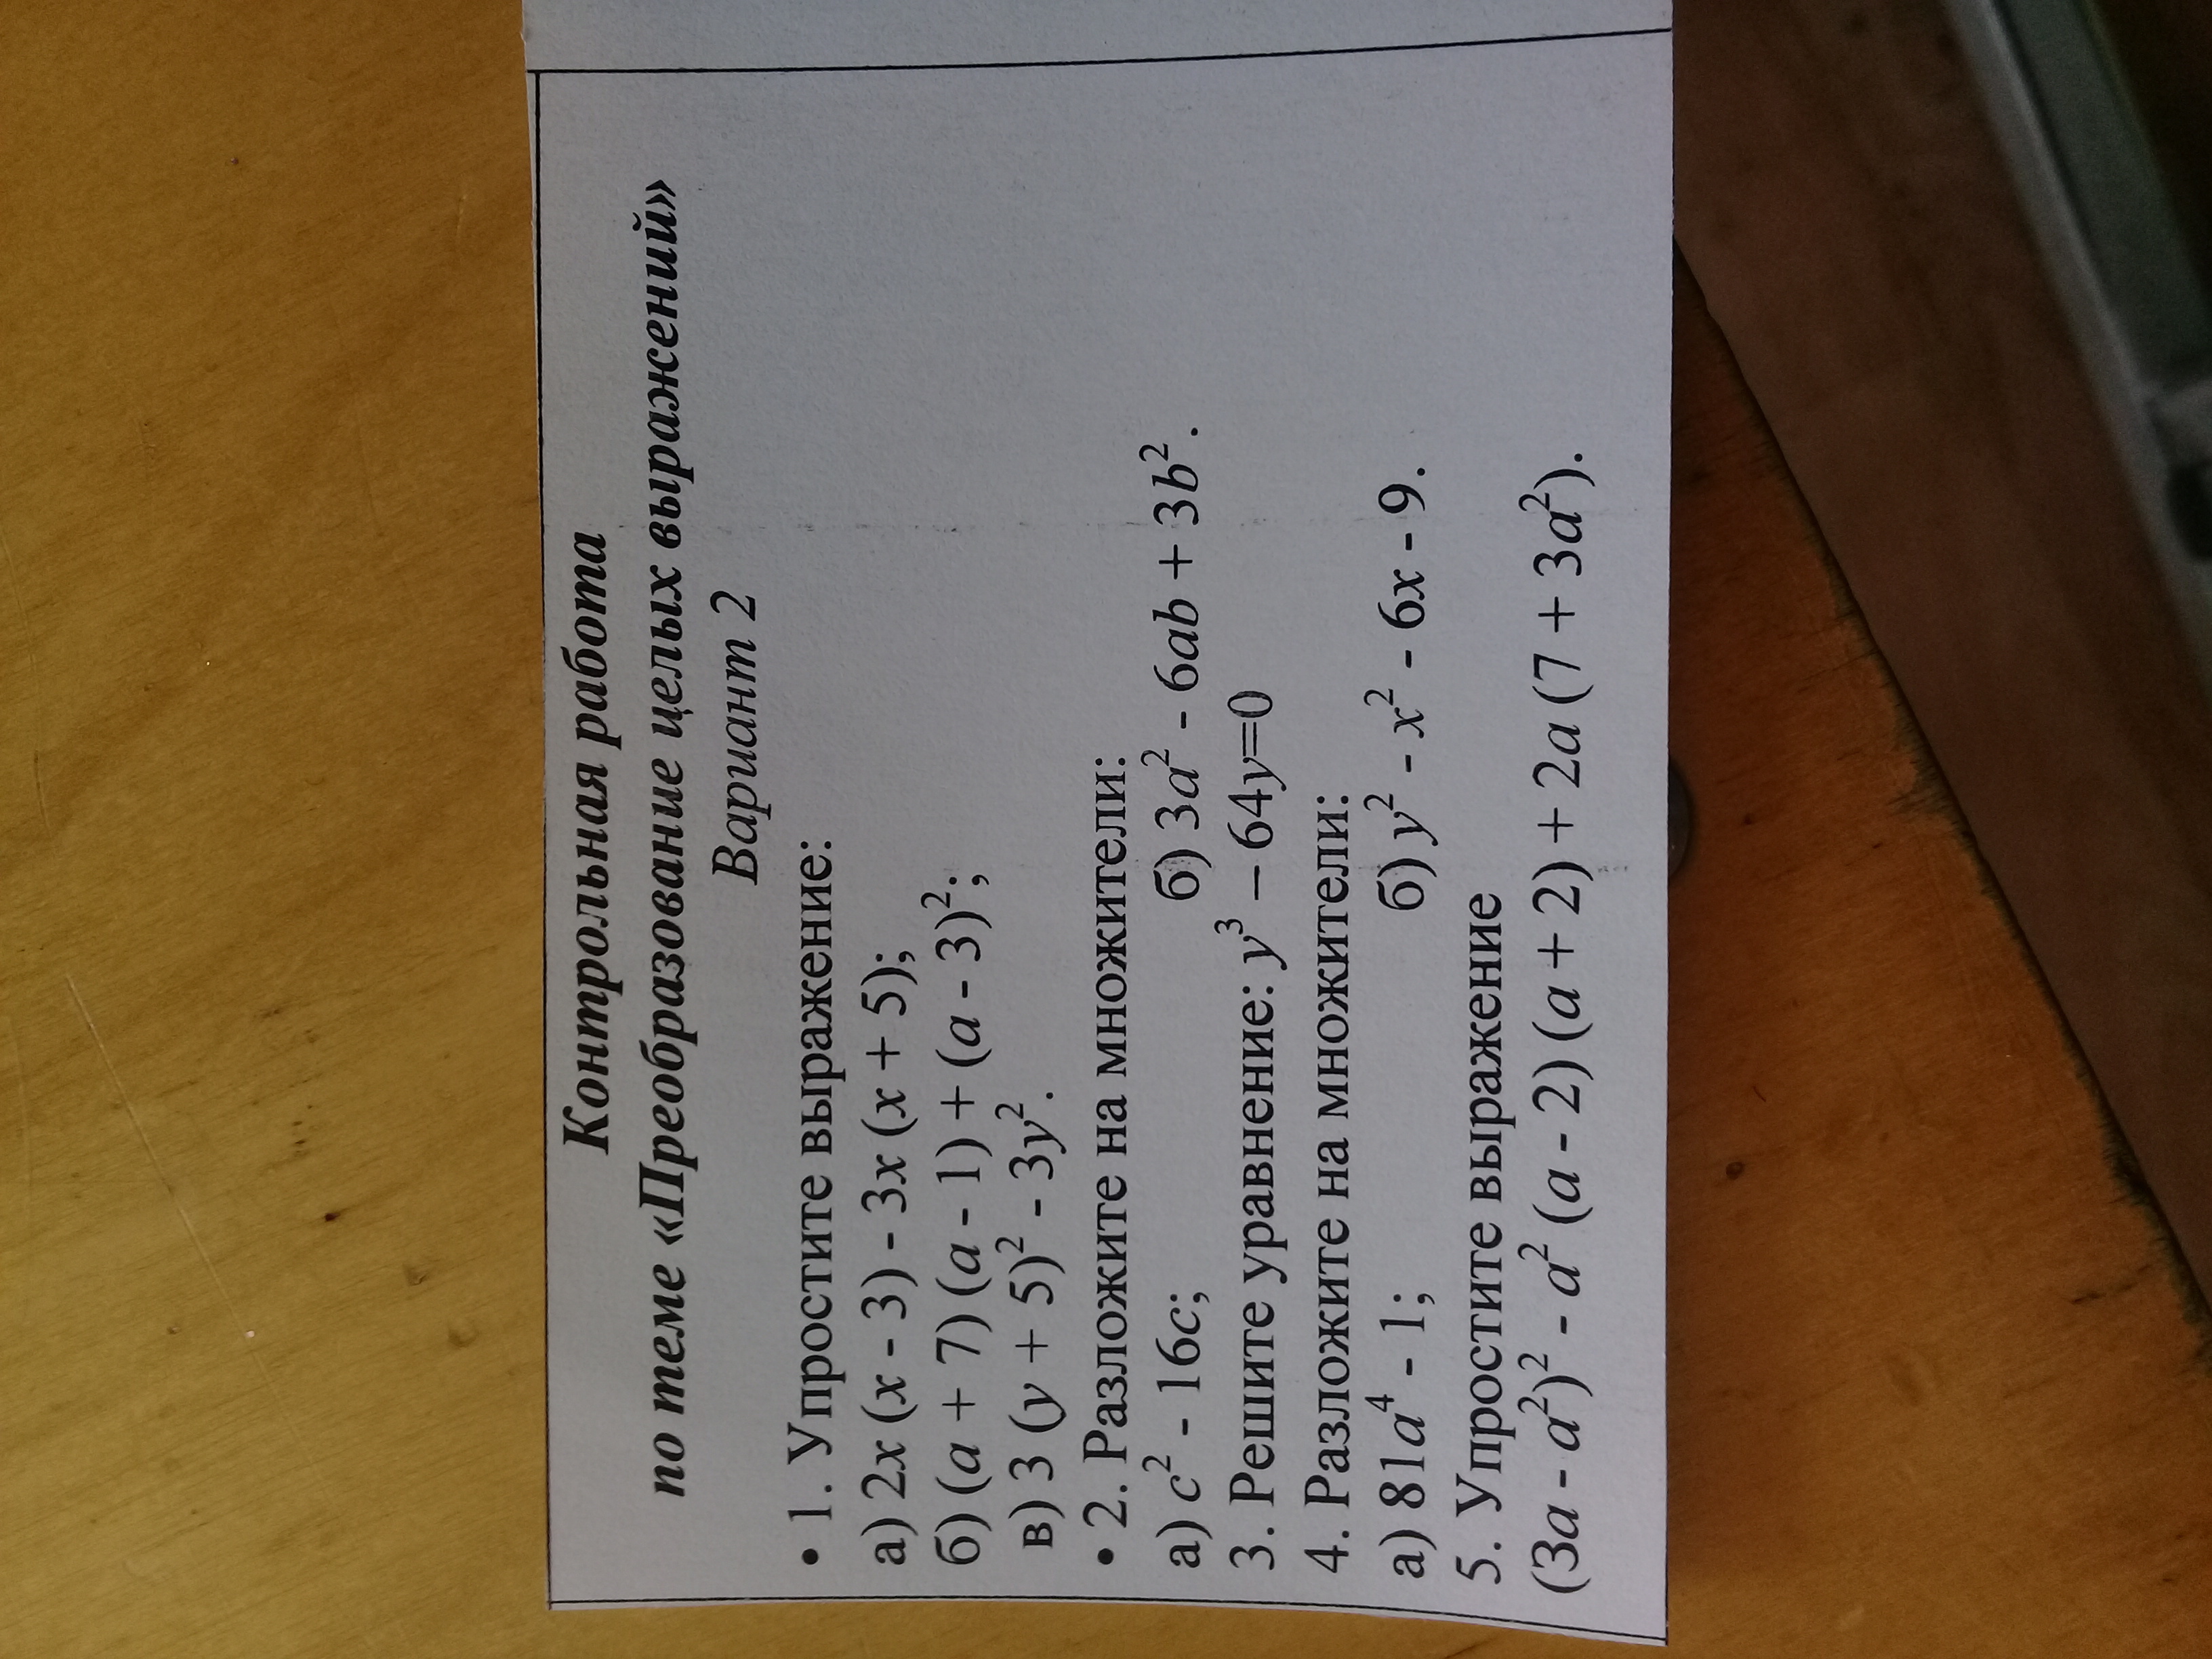 Контрольная работа
по теме «Преобразование целых выражений»
Вариант 2
• 1. Упростите выражение:
а) 2x (x - 3) - 3x (x + 5);
б) (a + 7) (a - 1) + (a - 3)²;
в) 3 (y + 5)² - 3y².
• 2. Разложите на множители:
а) c² - 16c; б) 3a² - 6ab + 3b².
3. Решите уравнение: y³ – 64y=0
4. Разложите на множители:
а) 81a⁴ - 1; б) y² - x² - 6x - 9.
5. Упростите выражение
(3a - a²)² - a² (a - 2) (a + 2) + 2a (7 + 3a²).